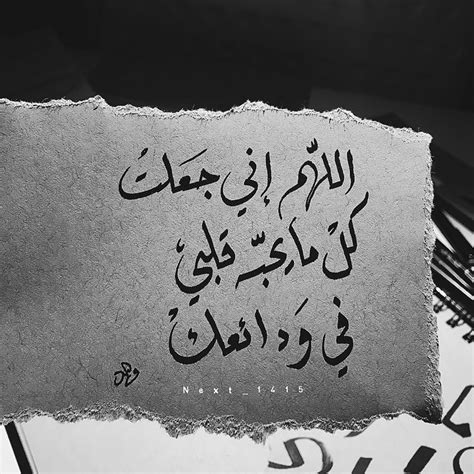 اللهم إني جعلت
كل ما يحبه قلبي
في ودائعك
Next_1415